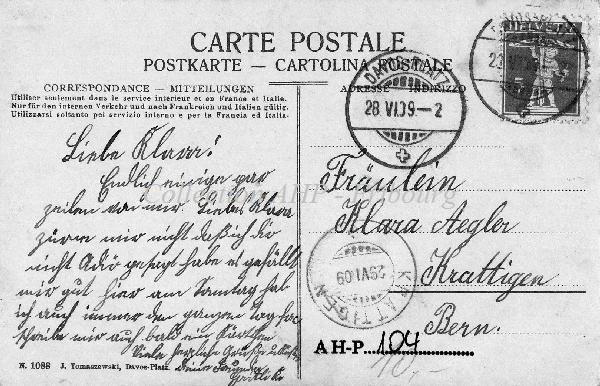 CARTE POSTALE
POSTKARTE — CARTOLINA POSTALE
CORRESPONDANCE — MITTEILUNGEN
ADRESSE INDIRIZZO
Utiliser seulement dans le service intérieur et en France et Italie.
Nur für den internen Verkehr und nach Frankreich und Italien gültig.
Utilizzarsi soltanto pel servizio interno e per la Francia ed Italia.
DAVOS-PLATZ
28 VI 09.–2
HELVETIA
5
Liebe Klara!
Endlich einige gar
zeilen von mir. Liebes Klara
zürne mir nicht daß ich dir
nicht Adö gesagt habe es gefällt
mir gut hier am Sonntag hab
ich auch immer den ganzen Tag
schreibe mir auch bald ein Kärtchen
Viele herzliche Grüße
deine
Fräulein
Klara Aegler
Krattigen
Bern.
KRATTIGEN
29 VI 09
AH-P 104
10,–
N. 1088 J. Tomaszewski, Davos-Platz.